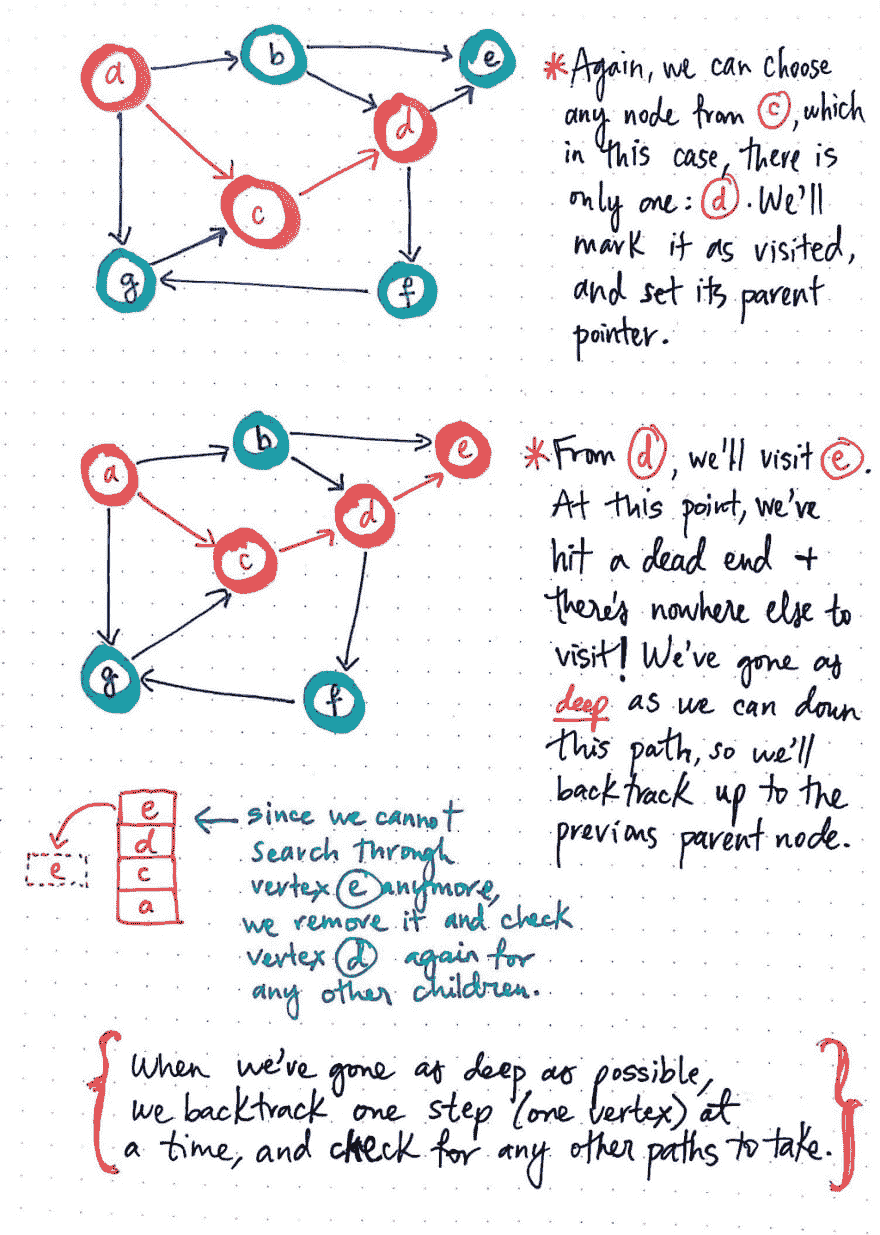 a
b
e
d
c
g
f
*Again, we can choose
any node from c, which
in this case, there is
only one: d. We'll
mark it as visited,
and set its parent
pointer.
a
b
e
d
c
g
f
*From d, we'll visit e.
At this point, we've
hit a dead end +
there's nowhere else to
visit! We've gone as
deep as we can down
this path, so we'll
backtrack up to the
previous parent node.
e
d
c
a
e
← since we cannot
search through
vertex e anymore,
we remove it and check
vertex d again for
any other children.
{When we've gone as deep as possible,
we backtrack one step (one vertex) at
a time, and check for any other paths to take.}